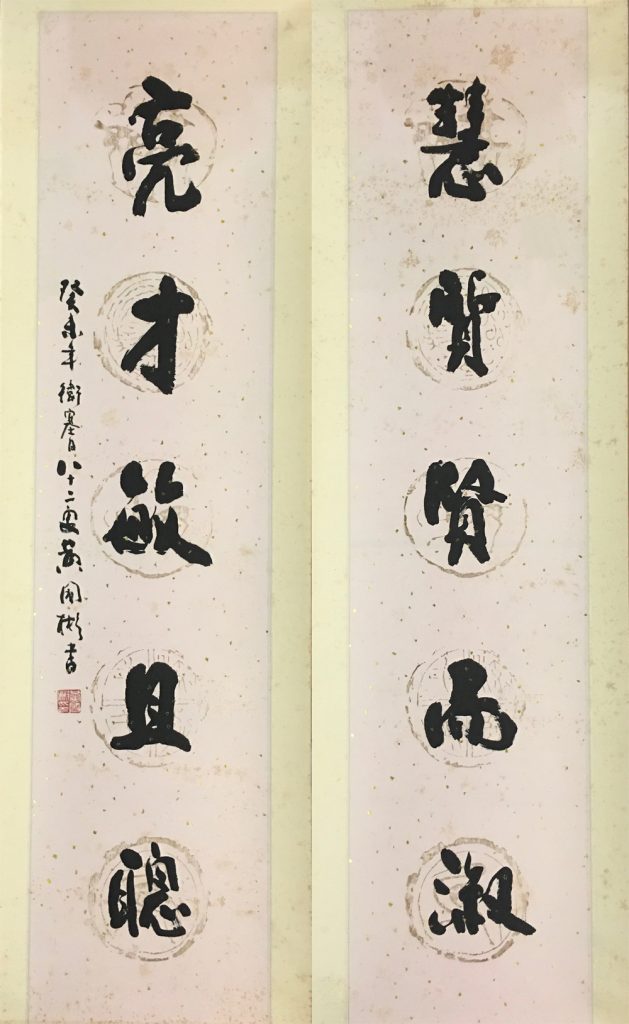 慧質賢而淑
亮才敏且聰
癸未年衛塞日八十二叟黃國彬書